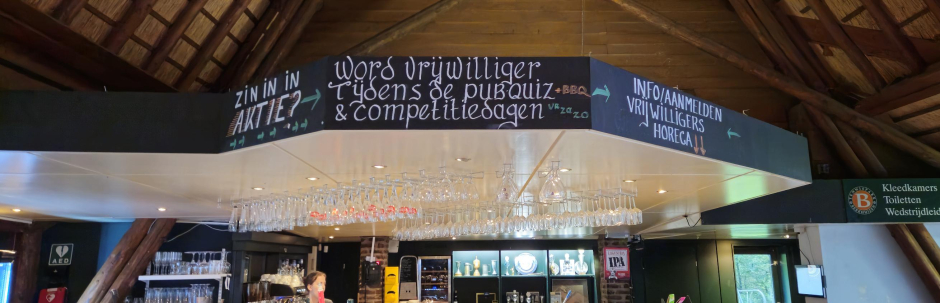 ZIN IN IN
AKTIE?
Word Vrijwilliger
Tijdens de pubquiz +BBQ
& Competitiedagen VR ZA ZO
INFO/AANMELDEN
VRIJWILLIGERS
HORECA
AED
IPA
B
Kleedkamers
Toiletten